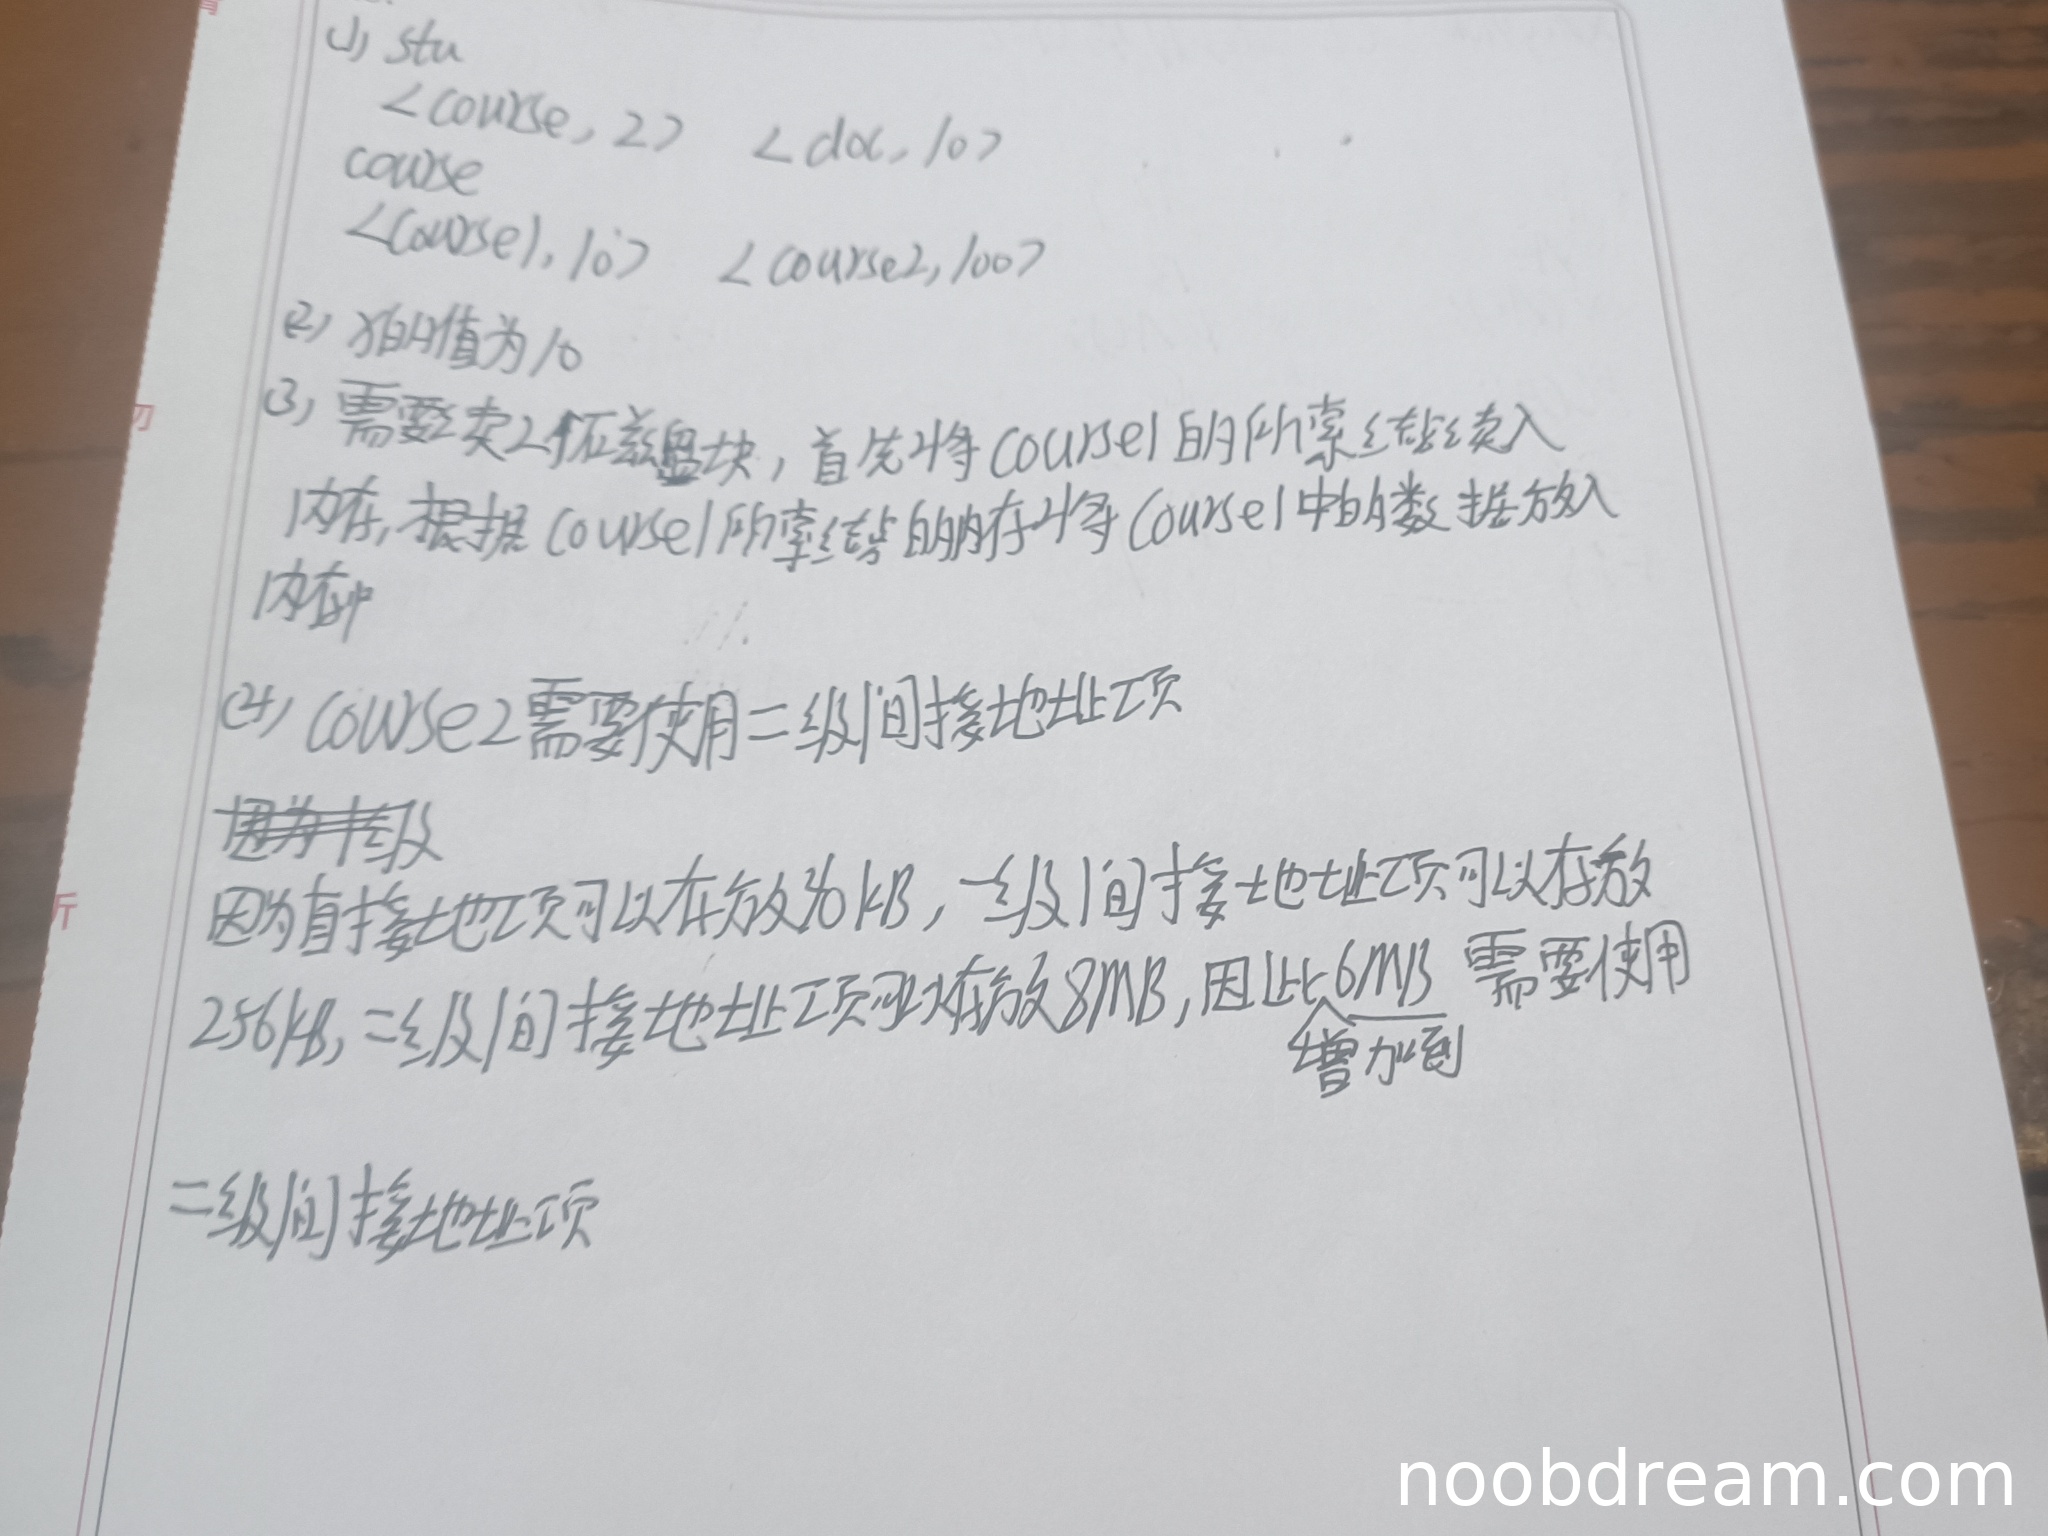 (1) stu
<course, 2> <doc, 10>
course
<course1, 10> <course2, 100>
(2) x的值为10
(3) 需要读2个磁盘块,首先将course1的所索结点读入
内存,根据course1所索结点的内存将course1中的数据放入
内存中
(4) course2需要使用二级间接地址项
因为一级
因为直接地址项可以存放10KB,一级间接地址项可以存放
256KB,二级间接地址项可以存放8MB,因此增加到6MB需要使用
二级间接地址项
noobdream.com